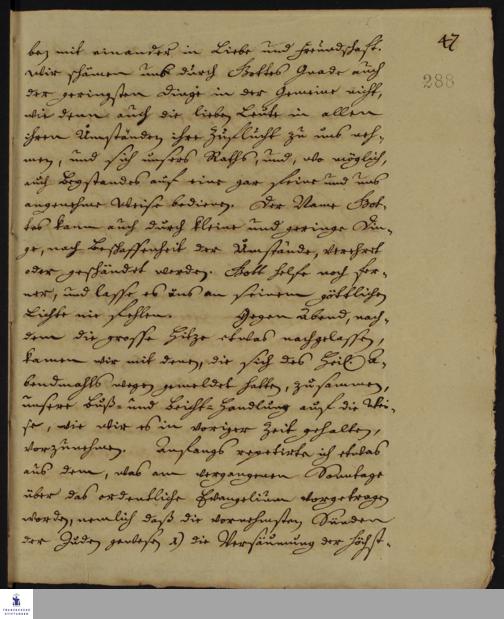 47
288
ben mit einander in Liebe und Freundschaft.
Wir schämen uns durch Gottes Gnade auch
der geringsten Dinge in der Gemeine nicht,
wie denn auch die lieben Leute in allen
ihren Umständen ihre Zuflucht zu uns neh-
men, und sich unsers Raths, und, wo möglich,
auch Beystandes auf eine gar feine und uns
angenehme Weise bedienen. Der Name Got-
tes kann auch durch kleine und geringe Din-
ge, nach Beschaffenheit der Umstände, verehret
oder geschändet werden. Gott helfe noch fer-
ner, und lasse es uns an seinem göttlichen
Lichte nie fehlen. Gegen Abend, nach-
dem die grosse Hitze etwas nachgelassen,
kamen wir mit denen, die sich des Heil. A-
bendmahls wegen gemeldet hatten, zusammen,
unsere Buß- und Beicht-Handlung auf die Wei-
se, wie wir es in voriger Zeit gehalten,
vorzunehmen. Anfangs repetirte ich etwas
aus dem, was am vergangenen Sonntage
über das ordentliche Evangelium vorgetragen
worden, nemlich daß die vornehmsten Sünden
der Juden gewesen 1) die Versäumung der höchst-
FRANCKESCHE
STIFTUNGEN